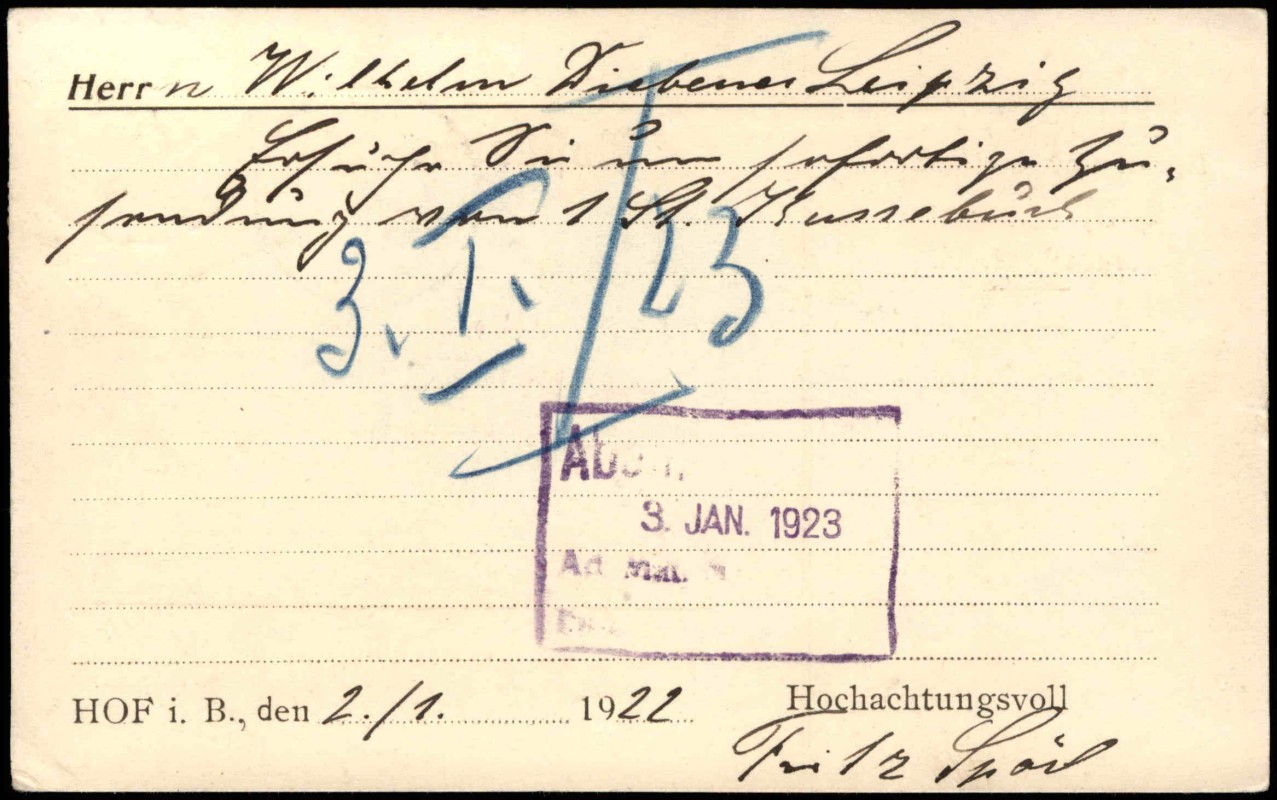 Herrn Wilhelm Diebener Leipzig
Ersuche Sie um sofortige Zu-
sendung von 1 St. Kassebuch
3. I. 23
3. JAN. 1923
HOF i. B., den 2./1. 1922 Hochachtungsvoll
Fritz Spörl